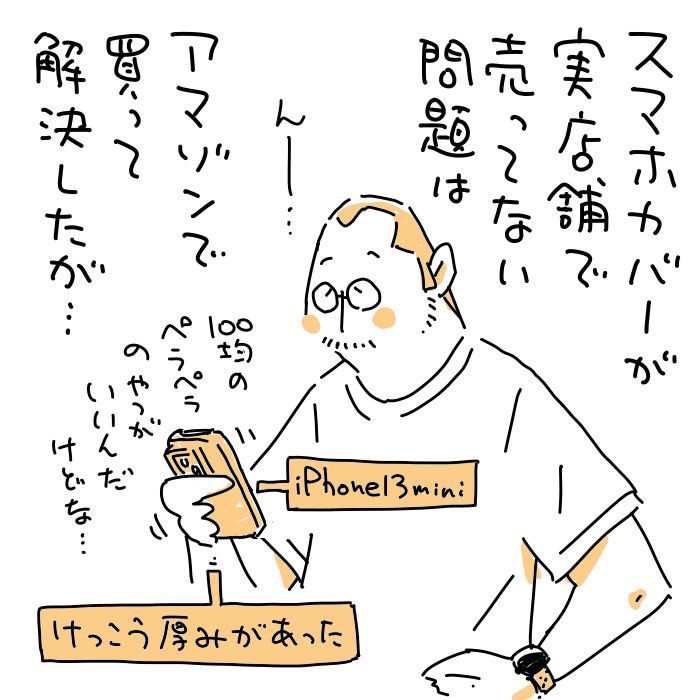 スマホカバーが
実店舗で
売ってない
問題は
アマゾンで
買って
解決したが…
んー…
100均の
ペラペラ
のやつが
いいんだ
けどな…
iPhone13mini
けっこう厚みがあった